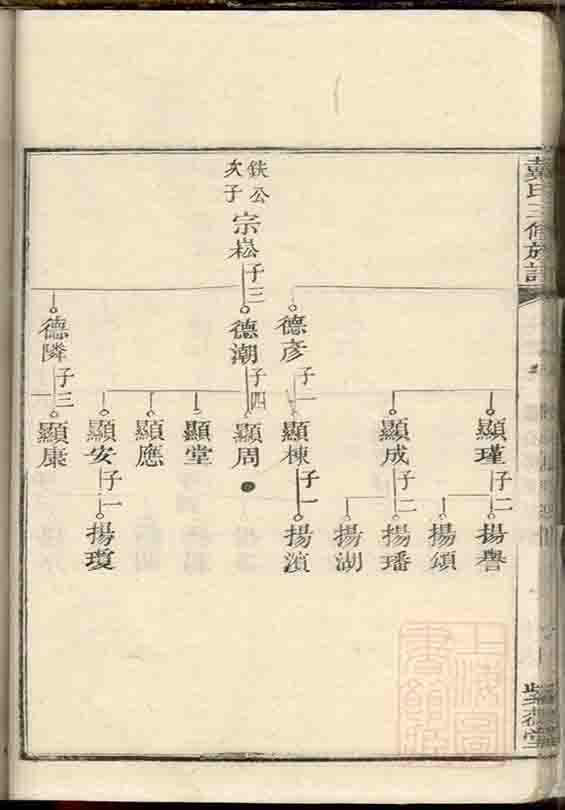 戴氏三修族譜
鉄公
次子
宗崧
子三
德彦
德潮
德隣
子一
子四
子三
顯瑾
顯成
顯棟
顯周
顯堂
顯應
顯安
顯康
子二
子二
子一
子一
揚譽
揚頌
揚璠
揚湖
揚濱
揚瓊
上海圖
書館藏